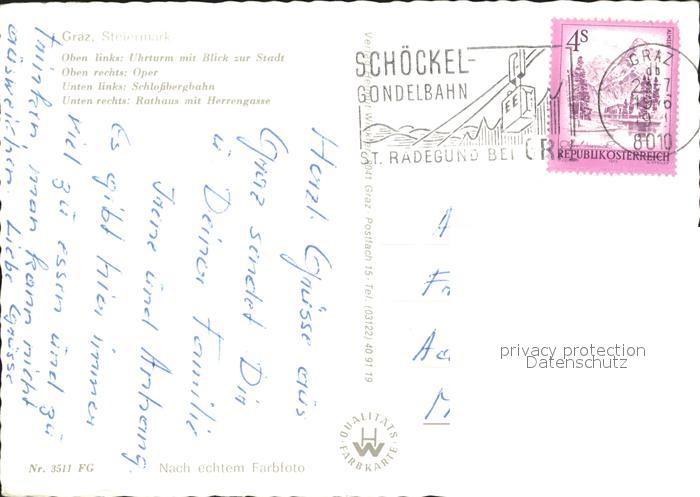 Graz, Steiermark
Oben links: Uhrturm mit Blick zur Stadt
Oben rechts: Oper
Unten links: Schloßbergbahn
Unten rechts: Rathaus mit Herrengasse
Herzl. Grüsse aus
Graz sendet Dir
u. Deiner Familie
Irene und Anhang.
Es gibt hier immer
viel zu essen und zu
trinken man kann nicht
ausweichen Liebe Grüsse
Nr. 3511 FG
Nach echtem Farbfoto
8041 Graz, Postfach 15 · Tel. (03122) 40 91 19
QUALITÄTS-
FARBKARTE
SCHÖCKEL-
GONDELBAHN
ST. RADEGUND BEI GRAZ
4S
REPUBLIK ÖSTERREICH
GRAZ
8010
A
Fr
M
privacy protection
Datenschutz